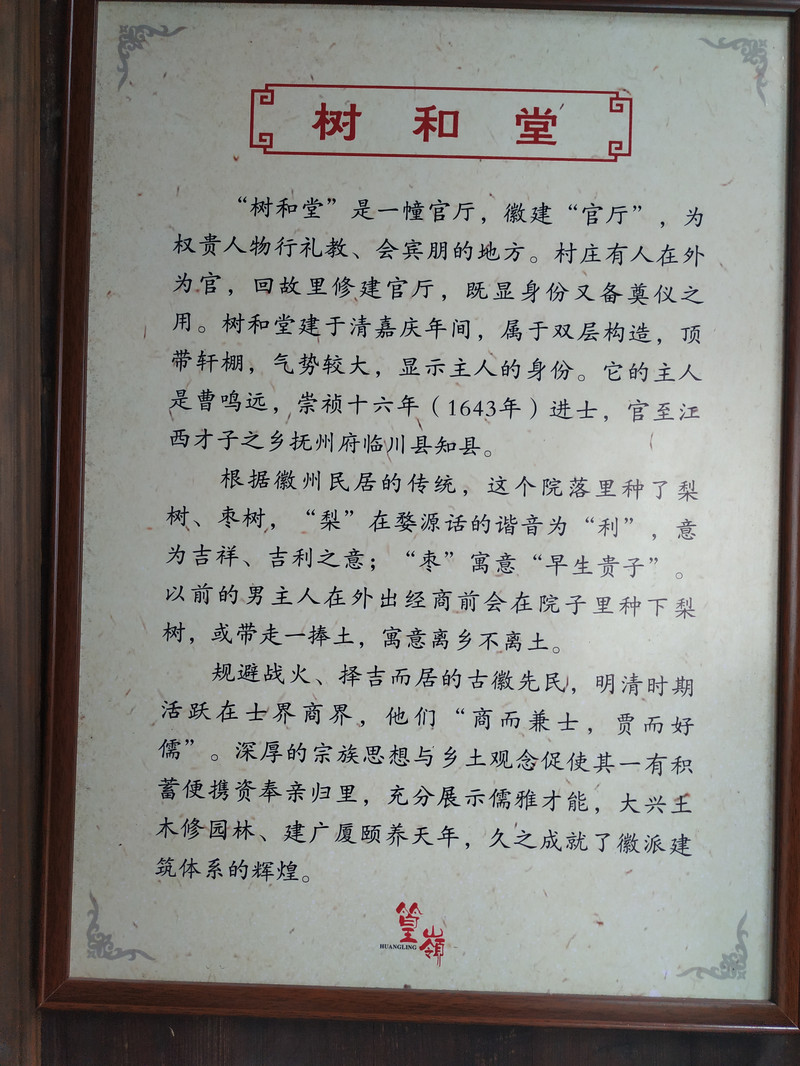 树和堂
“树和堂”是一幢官厅，徽建“官厅”，为
权贵人物行礼教、会宾朋的地方。村庄有人在外
为官，回故里修建官厅，既显身份又备奠仪之
用。树和堂建于清嘉庆年间，属于双层构造，顶
带轩棚，气势较大，显示主人的身份。它的主人
是曹鸣远，崇祯十六年（1643年）进士，官至江
西才子之乡抚州府临川县知县。
根据徽州民居的传统，这个院落里种了梨
树、枣树，“梨”在婺源话的谐音为“利”，意
为吉祥、吉利之意；“枣”寓意“早生贵子”。
以前的男主人在外出经商前会在院子里种下梨
树，或带走一捧土，寓意离乡不离土。
规避战火、择吉而居的古徽先民，明清时期
活跃在士界商界，他们“商而兼士，贾而好
儒”。深厚的宗族思想与乡土观念促使其一有积
蓄便携资奉亲归里，充分展示儒雅才能，大兴土
木修园林、建广厦颐养天年，久之成就了徽派建
筑体系的辉煌。
篁嶺
HUANGLING